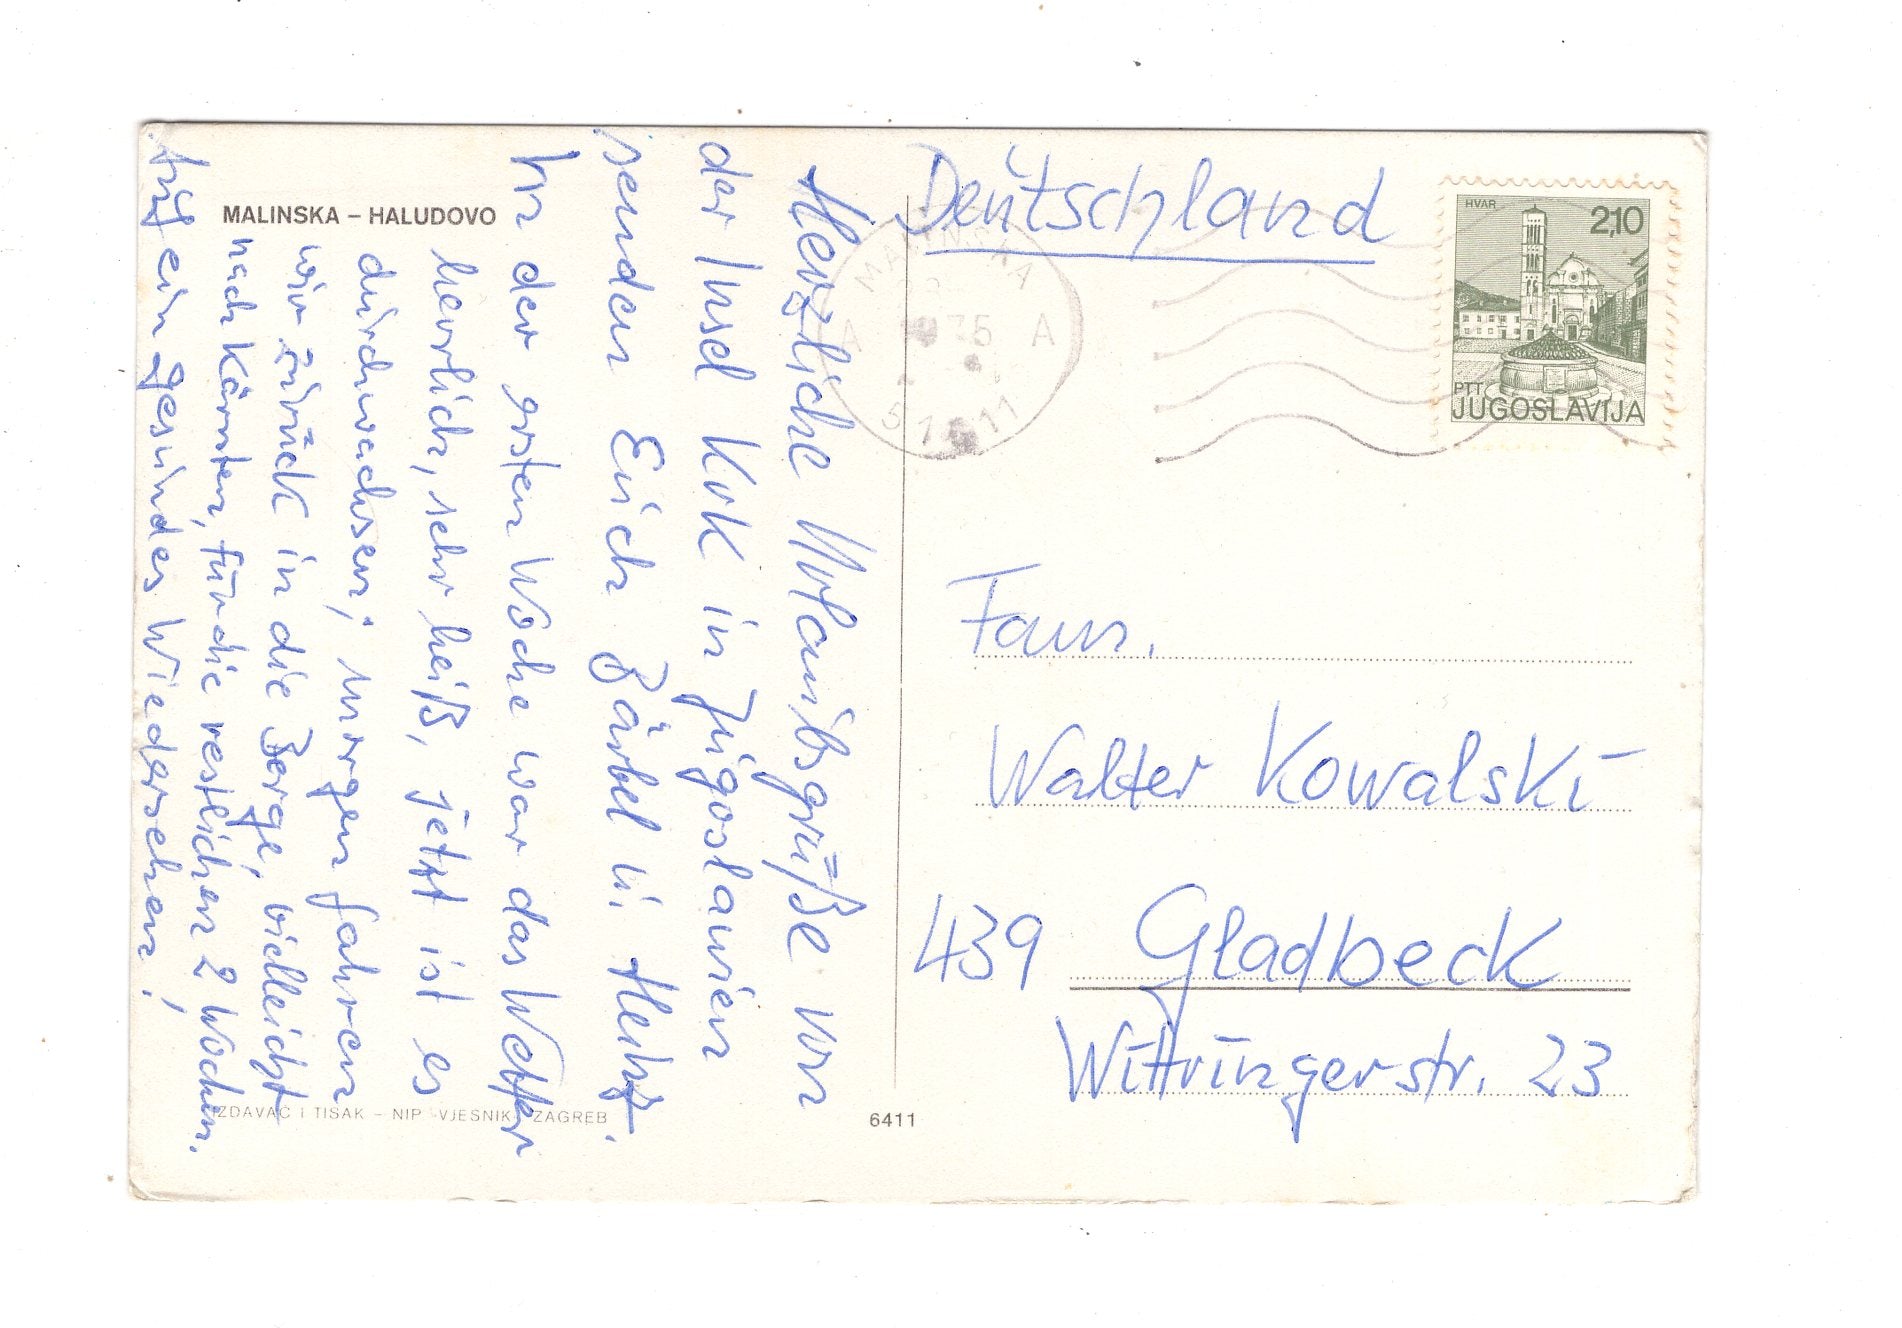 MALINSKA – HALUDOVO
Herzliche Urlaubsgrüße von
der Insel Krk in Jugoslawien
senden Euch Bärbel u. Heinz.
In der ersten Woche war das Wetter
herrlich, sehr heiß, jetzt ist es
durchwachsen; morgen fahren
wir zurück in die Berge, vielleicht
nach Kärnten, für die restlichen 2 Wochen.
Auf ein gesundes Wiedersehen!
IZDAVAČ I TISAK – NIP »VJESNIK« ZAGREB
6411
Deutschland
HVAR
2,10
PTT
JUGOSLAVIJA
MALINSKA
A 75 A
51511
Fam.
Walter Kowalski
439 Gladbeck
Wittringerstr. 23